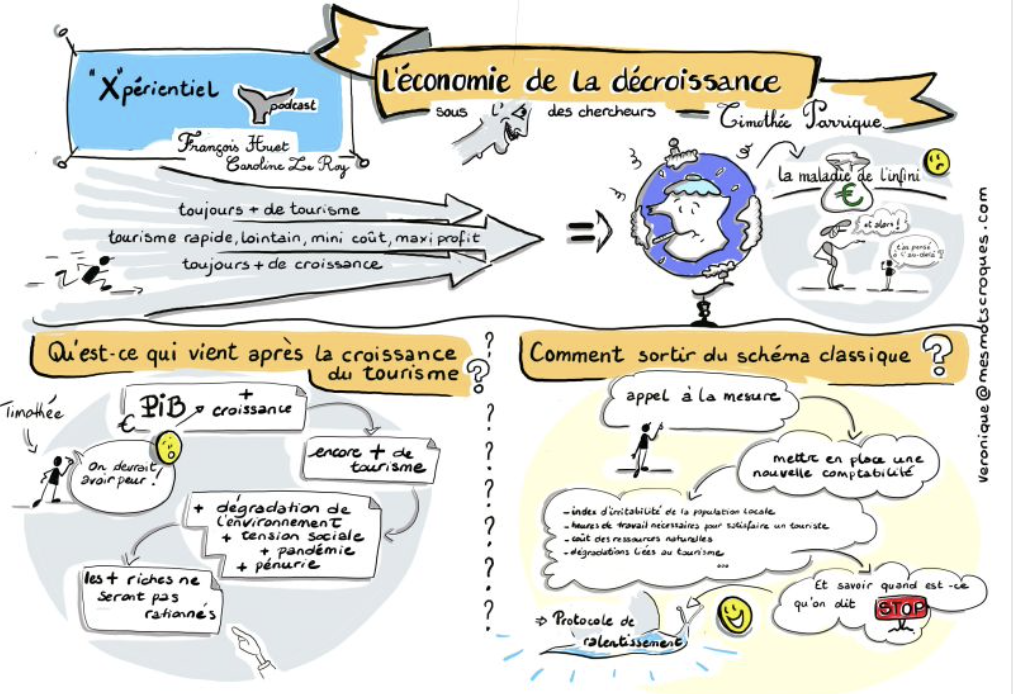 "X"périentiel
podcast
François Huet
Caroline Le Roy
L'économie de la décroissance
sous l'
des chercheurs
Timothée Parrique
toujours + de tourisme
tourisme rapide, lointain, mini coût, maxi profit
toujours + de croissance
=
la maladie de l'infini
€
et alors!
t'as pensé
à l'au-delà?
Veronique@mesmotscroques.com
Qu'est-ce qui vient après la croissance
du tourisme ?
Timothée
On devrait
avoir peur!
PiB
€
+
croissance
encore + de
tourisme
+ dégradation de
l'environnement
+ tension sociale
+ pandémie
+ pénurie
les + riches ne
seront pas
rationnés
?
?
?
?
?
?
?
?
Comment sortir du schéma classique ?
appel à la mesure
mettre en place une
nouvelle comptabilité
- index d'irritabilité de la population locale
- heures de travail nécessaires pour satisfaire un touriste
- coût des ressources naturelles
- dégradations liées au tourisme
...
Et savoir quand est-ce
qu'on dit STOP
⇒ Protocole de
ralentissement